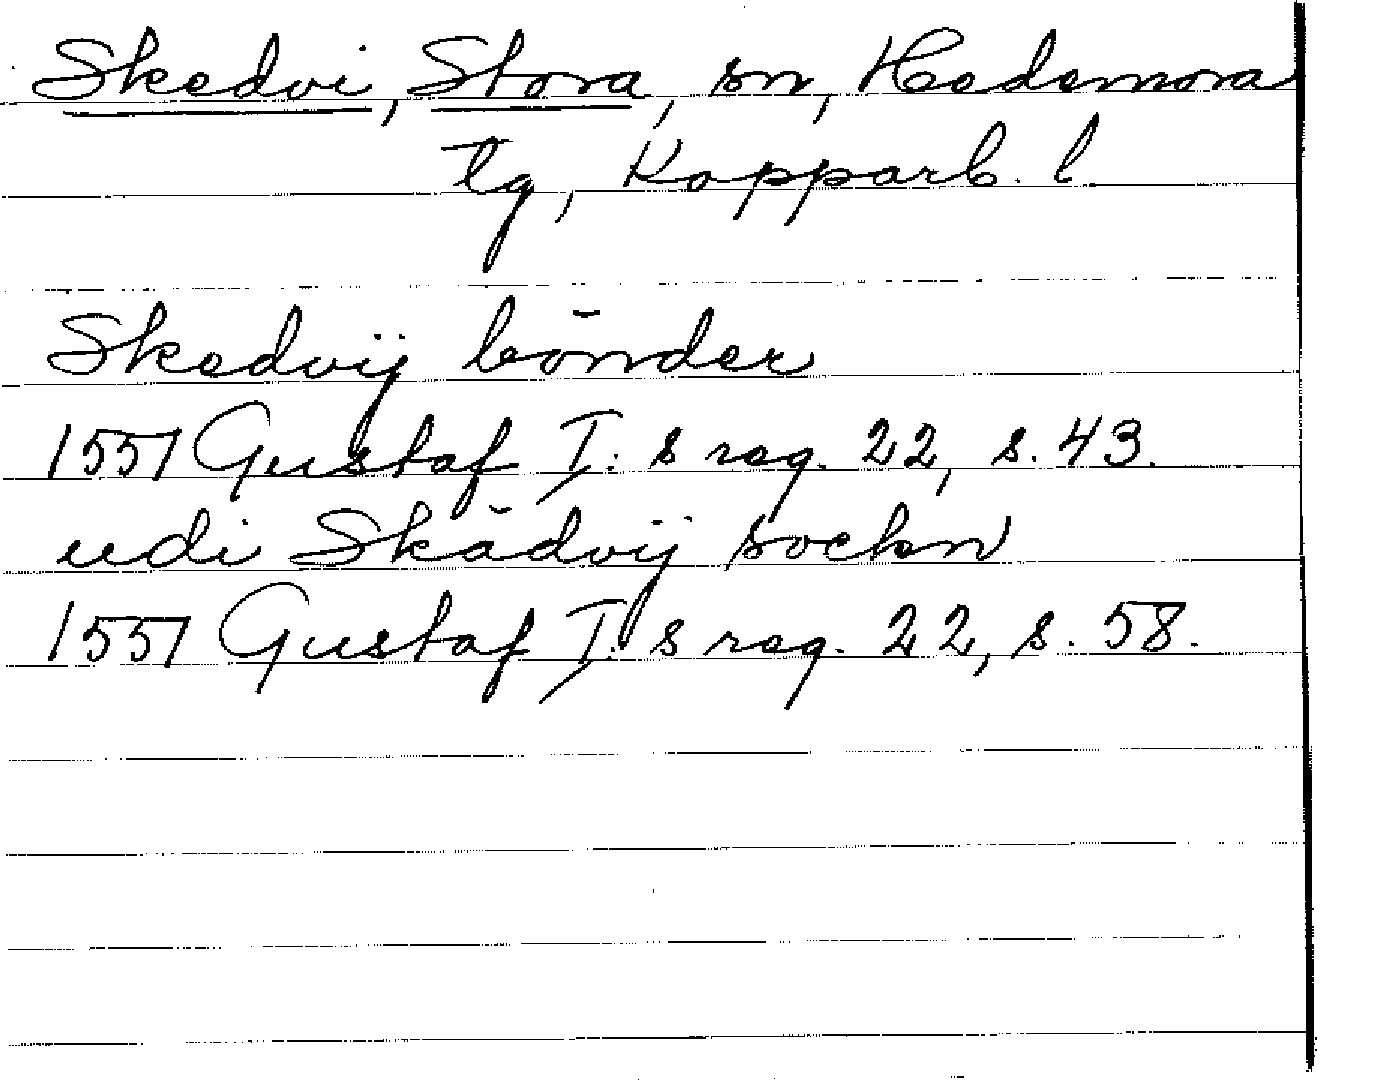 Skedvi, Stora, sn, Hedemora
tg, Kopparb. l
Skedvij bōnder
1551 Gustaf I: s reg. 22, s. 43.
udi Skādvij sockn
1551 Gustaf I: s reg. 22, s. 58.